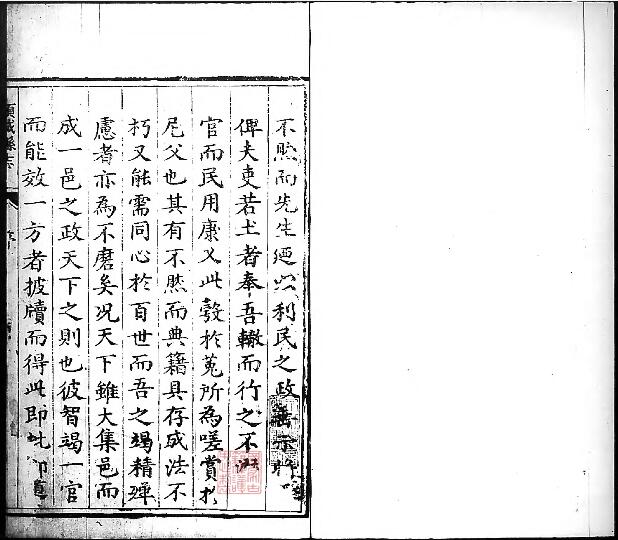 不然而先生廼以利民之政示
俾夫吏若士者奉吾轍而行之不
官而民用康乂此彀於菟所為嗟賞於
尼父也其有不然而典籍具存成法不
朽又能需同心於百世而吾之竭精殫
慮者亦為不磨矣况天下雖大集邑而
成一邑之政天下之則也彼智竭一官
而能效一方者披牘而得此即此
項城縣志
序